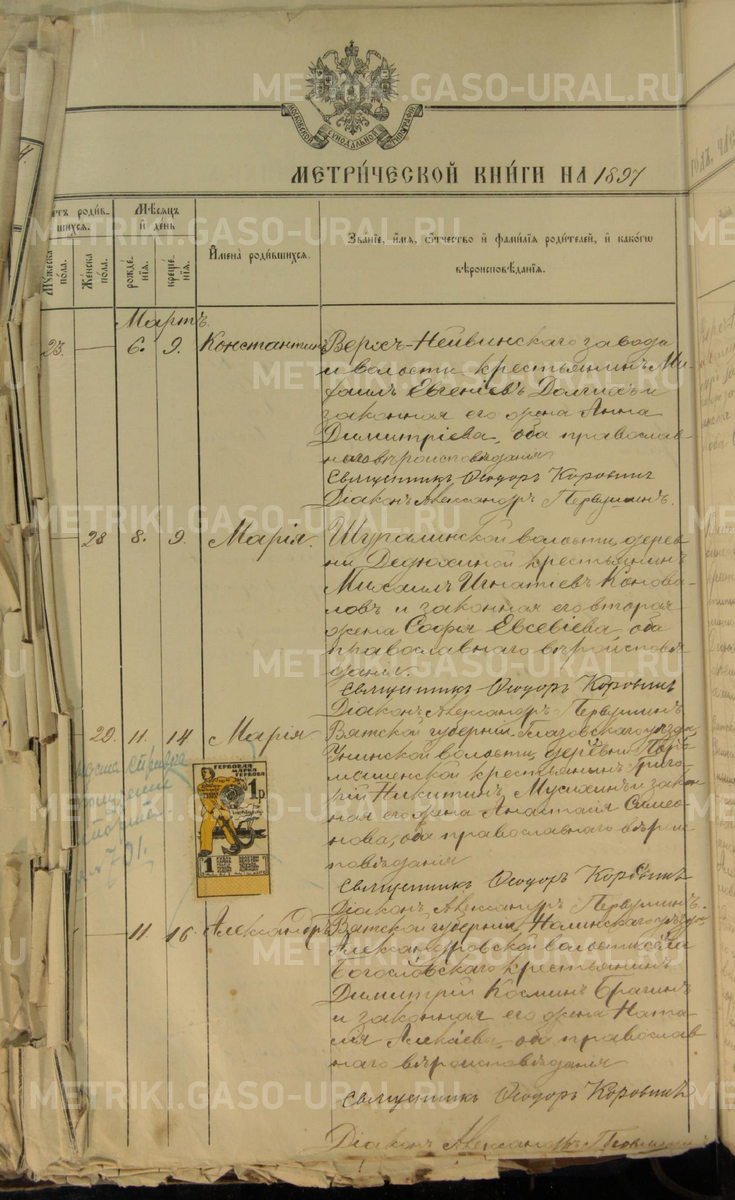 МОСКОВСКОЙ СѴНОДАЛЬНОЙ ТИПОГРАФІИ
МЕТРИ́ЧЕСКОЙ КНИ́ГИ НА 1897
родив-
шихся.
Мѣсяцъ
и день
Мужеска
пола.
Женска
пола.
рожде-
нія.
креще-
нія.
Имена родившихся.
Званіе, имя, отчество и фамилія родителей, и какогѡ
вѣроисповѣданія.
Мартъ
23. — 6. 9. Константинъ
Верхъ-Нейвинскаго завода
и волости крестьянинъ Ми-
хаилъ Евгеніевъ Долгихъ и
законная его жена Анна
Димитріева, оба православ-
наго вѣроисповѣданія
Священникъ Ѳеодоръ Коровинъ
Діаконъ Александръ Первушинъ.
— 28 8. 9. Марія.
Шуралинской волости, дерев
ни Дедюхиной крестьянинъ
Михаилъ Игнатіевъ Конова-
ловъ и законная его вторая
жена Софья Евсевіева, оба
православнаго вѣроисповѣ
данія.
Священникъ Ѳеодоръ Коровинъ
Діаконъ Александръ Первушинъ
— 29. 11. 14 Марія
Вятской губерніи Глазовскаго уѣзда,
Унинской волости, деревни
крестьянинъ Григо-
рій Никитинъ Мусихинъ и закон
ная его жена Анастасія Симео-
нова, оба православнаго вѣрои
повѣданія
Священникъ Ѳеодоръ Коровинъ
Діаконъ Александръ Первушинъ.
справка
№ 701.
ГЕРБОВАЯ
МАРКА
1 р
1
— 11 16. Александръ
Вятской губерніи, Нолинскаго уѣзда
Александровской волости, села
Богословскаго крестьянинъ
Димитрій Косминъ Брагинъ
и законная его жена Ната-
лія Алексіева, оба православ
наго вѣроисповѣданія
Священникъ Ѳеодоръ Коровинъ
Діаконъ Александръ Первушинъ
METRIKI.GASO-URAL.RU